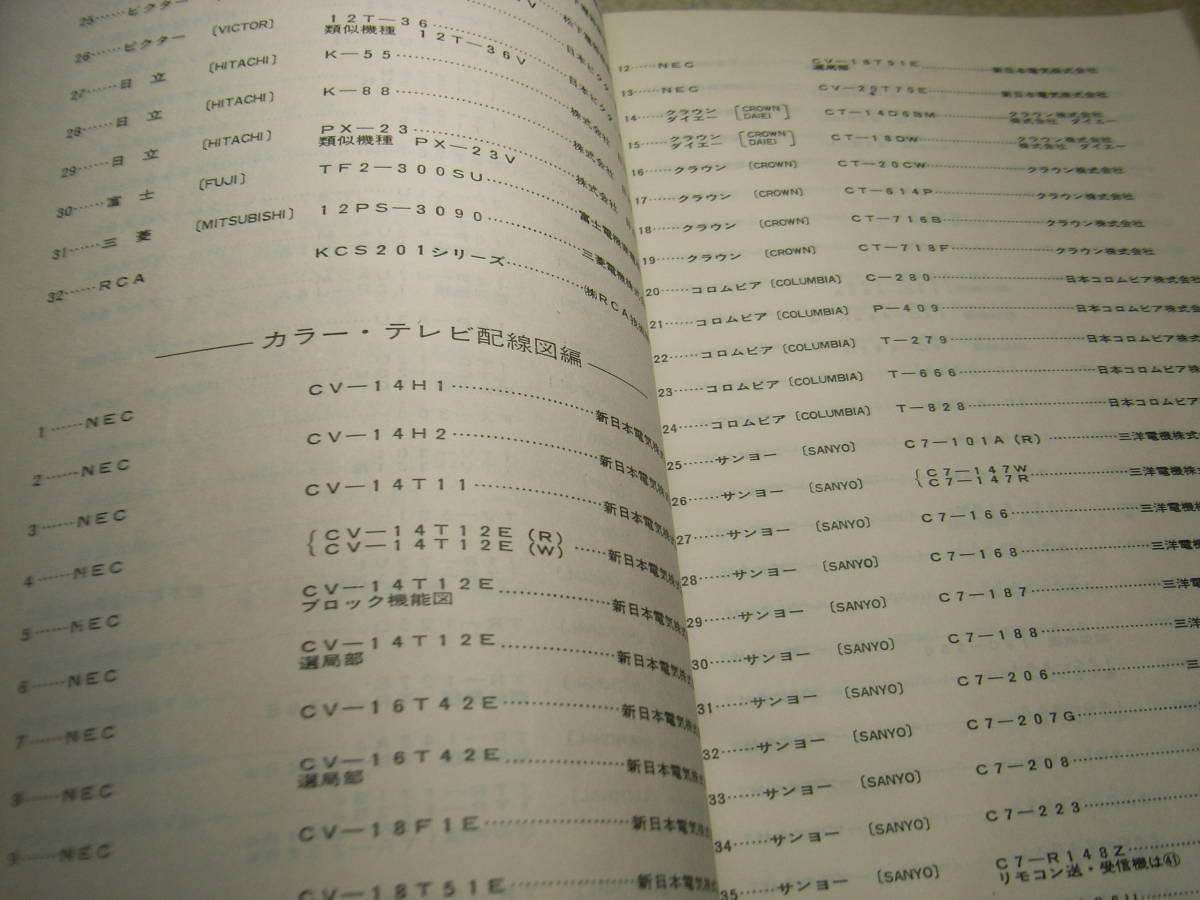 25……ビクター
26……ビクター 〔VICTOR〕 12T—36 類似機種 12T—36V 日本ビクタ
27……日 立 〔HITACHI〕 K—55 株式会社
28……日 立 〔HITACHI〕 K—88 株式会社
29……日 立 〔HITACHI〕 PX—23 類似機種 PX—23V 株式会社
30……富 士 〔FUJI〕 TF2—300SU 富士電機
31……三 菱 〔MITSUBISHI〕 12PS—3090 三菱電機株
32……RCA KCS201シリーズ ㈱RCA
カラー・テレビ配線図編
1……NEC CV—14H1 新日本電気株
2……NEC CV—14H2 新日本電気株
3……NEC CV—14T11 新日本電気株
4……NEC {CV—14T12E (R) CV—14T12E (W) 新日本電気株
5……NEC CV—14T12E ブロック機能図 新日本電気株
6……NEC CV—14T12E 選局部 新日本電気株
7……NEC CV—16T42E 新日本電気株
8……NEC CV—16T42E 選局部 新日本電気株
9……NEC CV—18F1E 新日本電気株
CV—18T51E 新日本電気株
12……NEC CV—18T51E 選局部 新日本電気株式会社
13……NEC CV—20T70E 新日本電気株式会社
14……クラウン ダイエー [CROWN DAIEI] CT—14D6BM クラウン株式会社 株式会社 ダイエー
15……クラウン ダイエー [CROWN DAIEI] CT—18DW クラウン株式会社 株式会社 ダイエー
16……クラウン 〔CROWN〕 CT—20CW クラウン株式会社
17……クラウン 〔CROWN〕 CT—614P クラウン株式会社
18……クラウン 〔CROWN〕 CT—716B クラウン株式会社
19……クラウン 〔CROWN〕 CT—718F クラウン株式会社
20……コロムビア〔COLUMBIA〕 C—280 日本コロムビア株式会社
21……コロムビア〔COLUMBIA〕 P—409 日本コロムビア株式会
22……コロムビア〔COLUMBIA〕 T—279 日本コロムビア株式
23……コロムビア〔COLUMBIA〕 T—666 日本コロムビア株
24……コロムビア〔COLUMBIA〕 T—828 日本コロムビア
25……サンヨー 〔SANYO〕 C7—101A (R) 三洋電機株式
26……サンヨー 〔SANYO〕 {C7—147W C7—147R 三洋電機株式
27……サンヨー 〔SANYO〕 C7—166 三洋電機株
28……サンヨー 〔SANYO〕 C7—168 三洋電機
29……サンヨー 〔SANYO〕 C7—187 三洋電
30……サンヨー 〔SANYO〕 C7—188 三洋
31……サンヨー 〔SANYO〕 C7—206 三
32……サンヨー 〔SANYO〕 C7—207G
33……サンヨー 〔SANYO〕 C7—208
34……サンヨー 〔SANYO〕 C7—223
35……サンヨー 〔SANYO〕 C7—R148Z リモコン送・受信機は㊶